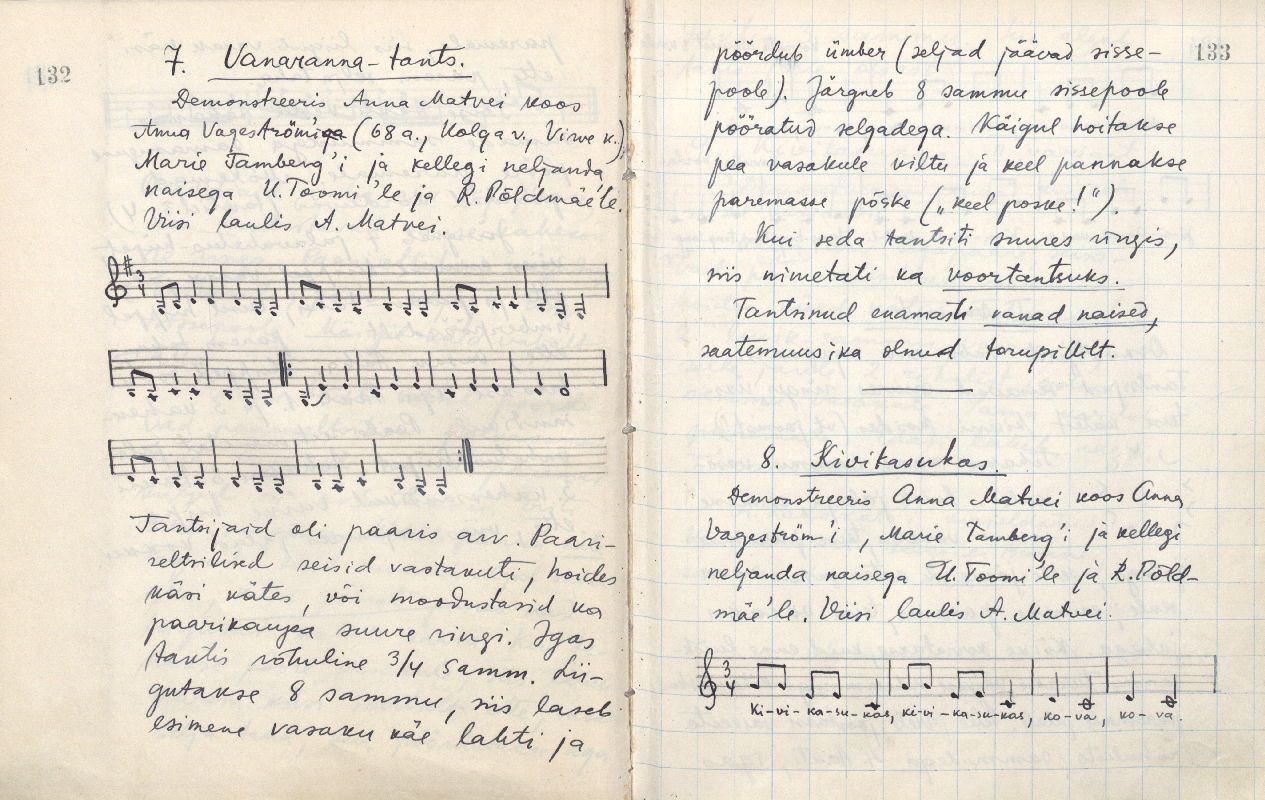 132
7. Vanaranna-tants.
Demonstreeris Anna Matvei koos
Anna Vageströmiga (68 a., Kolga v., Virve k.),
Marie Tamberg'i ja kellegi neljanda
naisega U. Toomi'le ja R. Põldmäe'le.
Viisi laulis A. Matvei.
3/4
Tantsijaid oli paaris arv. Paari-
seltsilised seisid vastakuti, hoides
käsi kätes, või moodustasid ka
paarikaupa suure ringi. Igas
taktis rõhuline 3/4 samm. Lii-
gutakse 8 sammu, siis laseb
esimene vasaku käe lahti ja
133
pöördub ümber (seljad jäävad sisse-
poole). Järgneb 8 sammu sissepoole
pööratud selgadega. Käigul hoitakse
pea vasakule viltu ja keel pannakse
paremasse põske („keel poske!“).
Kui seda tantsiti suures ringis,
siis nimetati ka voortantsuks.
Tantsinud enamasti vanad naised,
saatemuusika olnud torupillilt.
8. Kivikasukas.
Demonstreeris Anna Matvei koos Anna
Vageström'i, Marie Tamberg'i ja kellegi
neljanda naisega U. Toomi'le ja R. Põld-
mäe'le. Viisi laulis A. Matvei.
3/4
Ki-vi-ka-su-kas, ki-vi-ka-su-kas, ko-va, ko-va.